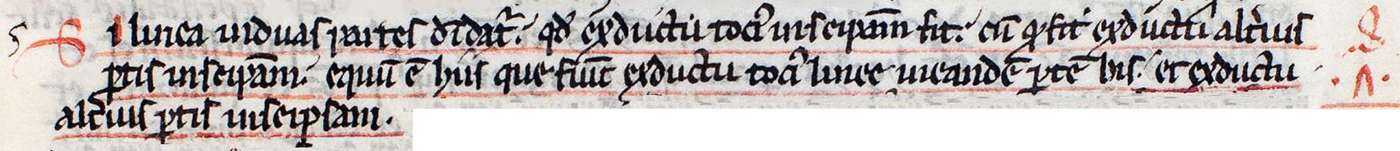 5 Si linea induas partes diuidat᷑. qđ exductu toci᷒ inseipam̄ fit. cū ꝙ fit exductu alt̓ius 8
ꝑtis inseipam̄. equū ē hijs que fiūt exductu toci᷒ linee ineandē ꝑtē bis. et exductu .Λ.
alt̓ius ꝑtis inseipsam.